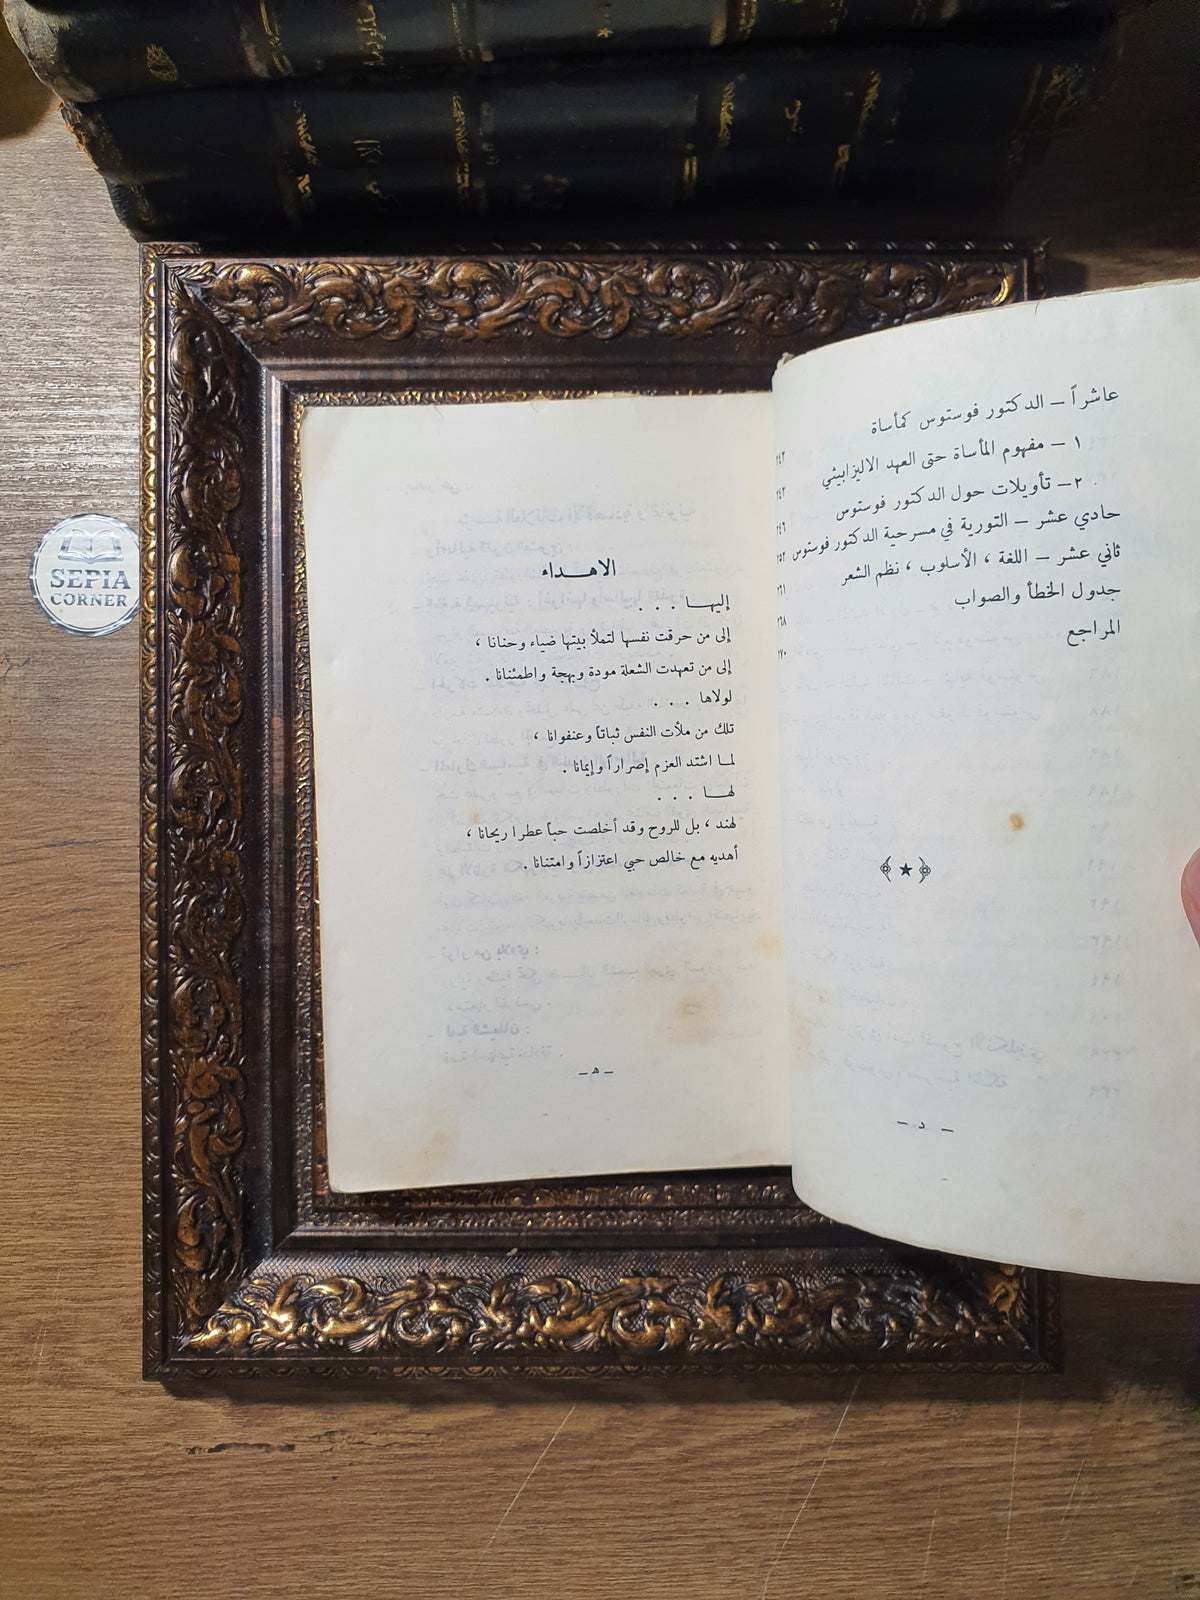 عاشراً — الدكتور فوستوس كمأساة
١ — مفهوم المأساة حتى العهد الاليزابيثي
٢ — تأويلات حول الدكتور فوستوس
حادي عشر — التورية في مسرحية الدكتور فوستوس
ثاني عشر — اللغة ، الأسلوب ، نظم الشعر
جدول الخطأ والصواب
المراجع
— د —
الاهـداء
إليهـا . . .
إلى من حرقت نفسها لتملأ بيتها ضياء وحنانا ،
إلى من تعهدت الشعلة مودة وبهجة واطمئنانا .
لولاها . . .
تلك من ملأت النفس ثباتاً وعنفوانا ،
لمـا اشتد العزم إصراراً وإيمانا .
لهـا . . .
لهند ، بل للروح وقد أخلصت حباً عطرا ريحانا ،
أهديه مع خالص حبي اعتزازاً وامتنانا .
— ه —
SEPIA
CORNER